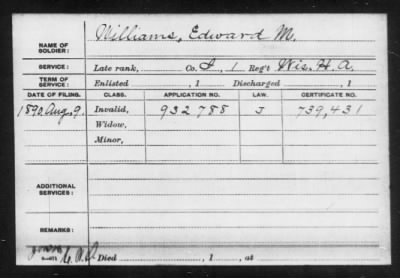 NAME OF SOLDIER: Williams, Edward M.
SERVICE: Late rank, Co. I, 1 Reg't Wis. H. A.
TERM OF SERVICE: Enlisted , 1 Discharged , 1
DATE OF FILING. CLASS. APPLICATION NO. LAW. CERTIFICATE NO.
1890, Aug. 9. Invalid, 932788 J 739,431
Widow,
Minor,
ADDITIONAL SERVICES:
REMARKS:
Died , 1 , at